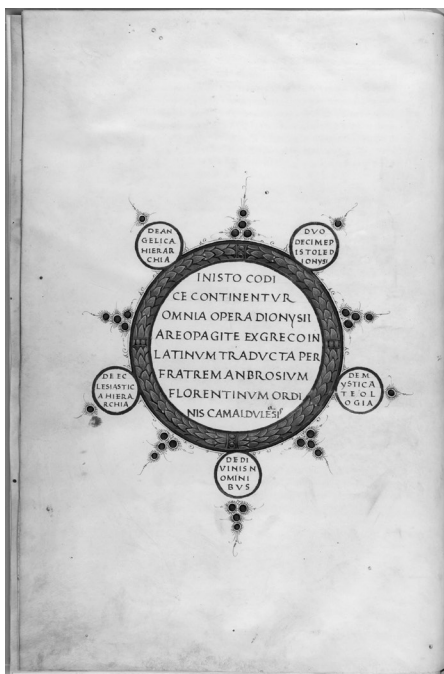 DE AN
GELICA
HIERAR
CHIA
DVO
DECIM EP
ISTOLE D
IONYSI
IN ISTO CODI
CE CONTINENTVR
OMNIA OPERA DIONYSII
AREOPAGITE EX GRECO IN
LATINVM TRADVCTA PER
FRATREM ANBROSIVM
FLORENTINVM ORDI
NIS CAMALDVLESI
DE EC
LESIASTIC
A HIERA
RCHIA
DE M
YSTICA
TEOL
OGIA
DE DI
VINIS N
OMINI
BVS